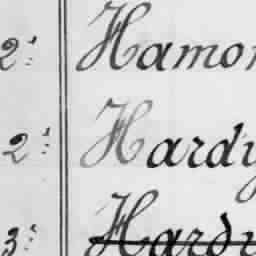 2ˢ Hamon
2ˢ Hardy
3ˢ Hardy